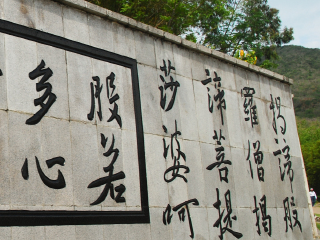 揭諦般
羅僧揭
諦菩提
莎婆呵
般若
多心